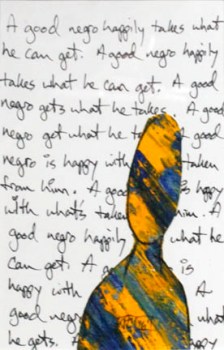 A good negro happily takes what
he can get. A good negro happily
takes what he can get. A good
negro gets what he takes. A good
negro get what he t A good
negro is happy with taken
from him. A good s happy
with what's taken him. A
good negro happily what he
can get. A g is
happy with A
good negro wha
he gets. A